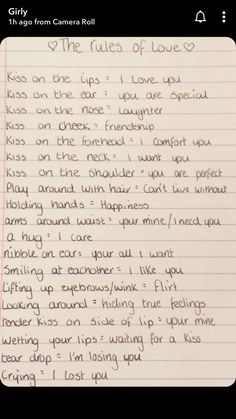 Girly
1h ago from Camera Roll
♡The rules of Love♡
Kiss on the Lips = I Love you
Kiss on the ear = you are special
Kiss on the nose = Laughter
Kiss on cheek = friendship
Kiss on the forehead = I comfort you
Kiss on the neck = I want you
Kiss on the shoulder = you are perfect
Play around with hair = can't live without
Holding hands = Happiness
arms around waist = your mine / I need you
a hug = I care
nibble on ear = your all I want
Smiling at eachother = I like you
Lifting up eyebrows/wink = Flirt
Looking around = hiding true feelings
tender kiss on side of lip = your mine
Wetting your lips = waiting for a kiss
tear drop = I'm losing you
Crying = I lost you